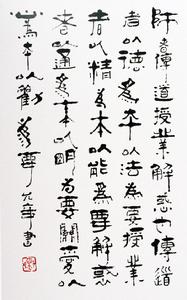 師者傳道授業解惑也傳道
者以德為本以法為要授業
者以精為本以能為要解惑
者以通為本以明為要關愛以
為本以勸為要 書